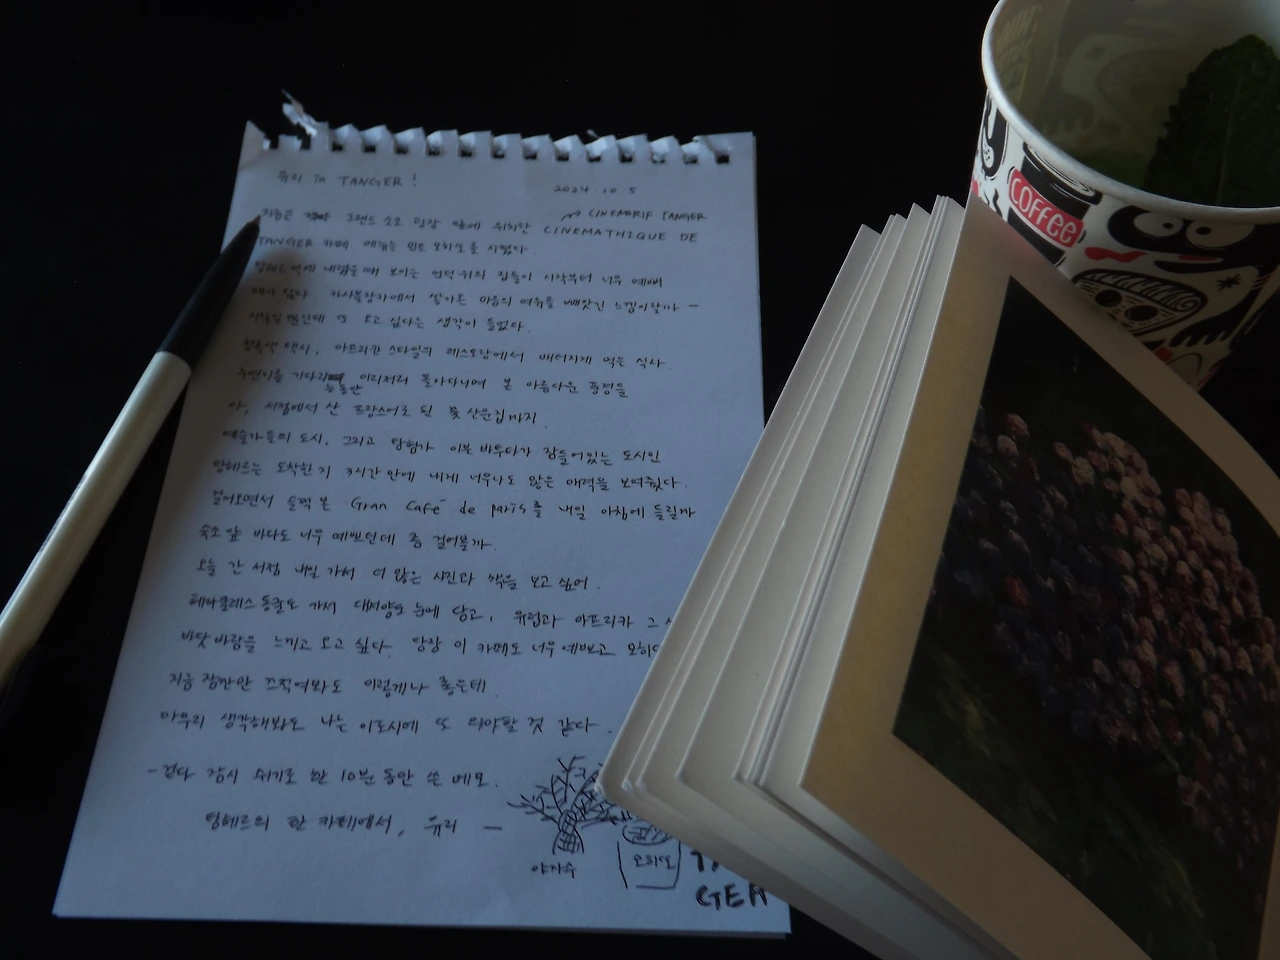 유리 in TANGER !
2024. 10. 5
지금은 그랜드 소코 광장 앞에 위치한 CINEMATHIQUE DE
→ CINEMA RIF TANGER
TANGER 카페 메뉴는 민트 모히또를 시켰다.
탕헤르 역에 내렸을 때 보이는 언덕 위의 집들이 시작부터 너무 예뻐
카사블랑카에서 쌓아온 마음의 여유를 빼앗긴 느낌이랄까 –
또 오고 싶다는 생각이 들었다.
청록색 택시, 아프리카 스타일의 레스토랑에서 배터지게 먹은 식사.
이리저리 돌아다니며 본 아름다운 풍경들
동안
아, 서점에서 산 프랑스어로 된 꽃 사진집까지.
예술가들의 도시, 그리고 탐험가 이븐 바투타가 잠들어있는 도시인
탕헤르는 도착한 지 3시간 만에 내게 너무나도 많은 매력을 보여줬다.
걸어오면서 슬쩍 본 Gran Café de paris를 내일 아침에 들릴까
숙소 앞 바다도 너무 예쁘던데 좀 걸어볼까.
오늘 간 서점 내일 가서 더 많은 사진과 책을 보고 싶어.
헤라클레스 동굴도 가서 대서양도 눈에 담고, 유럽과 아프리카 그
바닷바람을 느끼고 오고 싶다. 당장 이 카페도 너무 예쁘고
지금 잠깐만 끄적여봐도 이렇게나 좋은데.
아무리 생각해봐도 나는 이 도시에 또 와야할 것 같다.
- 걷다 잠시 쉬기로 한 10분 동안 쓴 메모.
탕헤르의 한 카페에서, 유리 –
야자수
모히또
GER
COFFEE